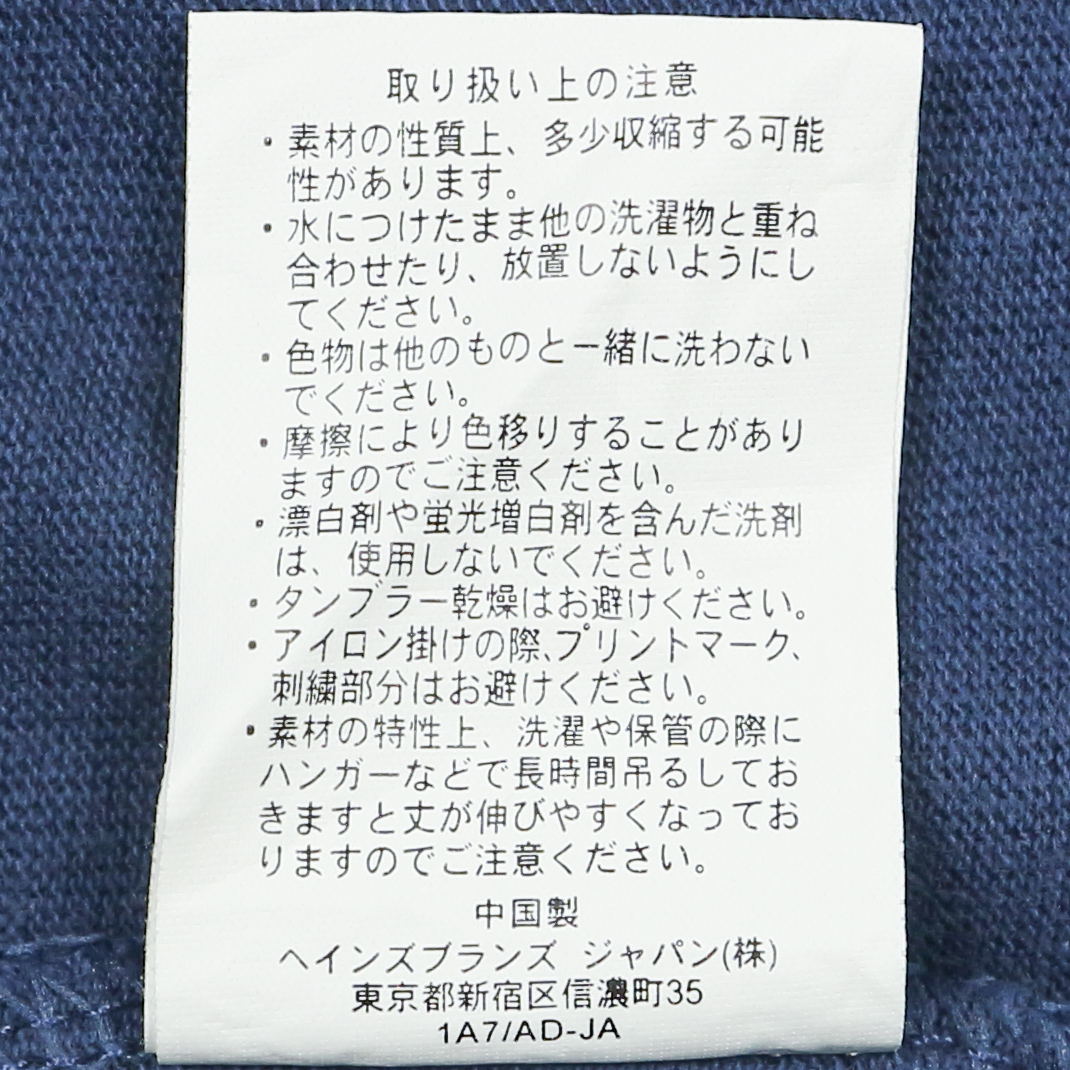 取り扱い上の注意
・素材の性質上、多少収縮する可能
性があります。
・水につけたまま他の洗濯物と重ね
合わせたり、放置しないようにし
てください。
・色物は他のものと一緒に洗わない
でください。
・摩擦により色移りすることがあり
ますのでご注意ください。
・漂白剤や蛍光増白剤を含んだ洗剤
は、使用しないでください。
・タンブラー乾燥はお避けください。
・アイロン掛けの際、プリントマーク、
刺繍部分はお避けください。
・素材の特性上、洗濯や保管の際に
ハンガーなどで長時間吊るしてお
きますと丈が伸びやすくなってお
りますのでご注意ください。
中国製
ヘインズブランズ ジャパン(株)
東京都新宿区信濃町35
1A7/AD-JA